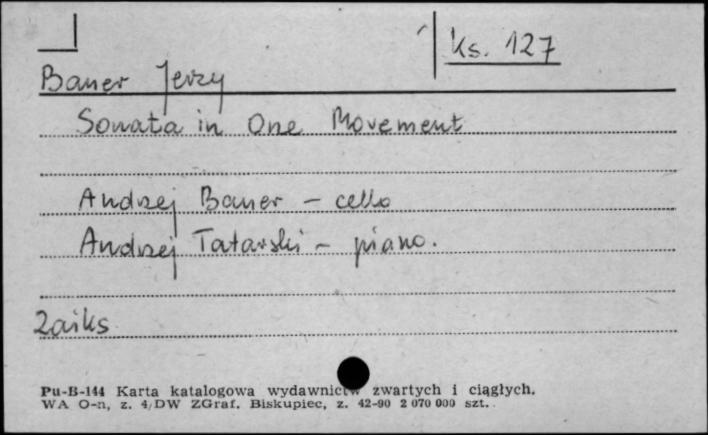 ks. 127
Bauer Jerzy
Sonata in One Movement
Andrzej Bauer – cello
Andrzej Tatarski – piano.
Zaiks
Pu-B-144 Karta katalogowa wydawnictw zwartych i ciągłych.
WA O-n, z. 4/DW ZGraf. Biskupiec, z. 42-90 2 070 000 szt.